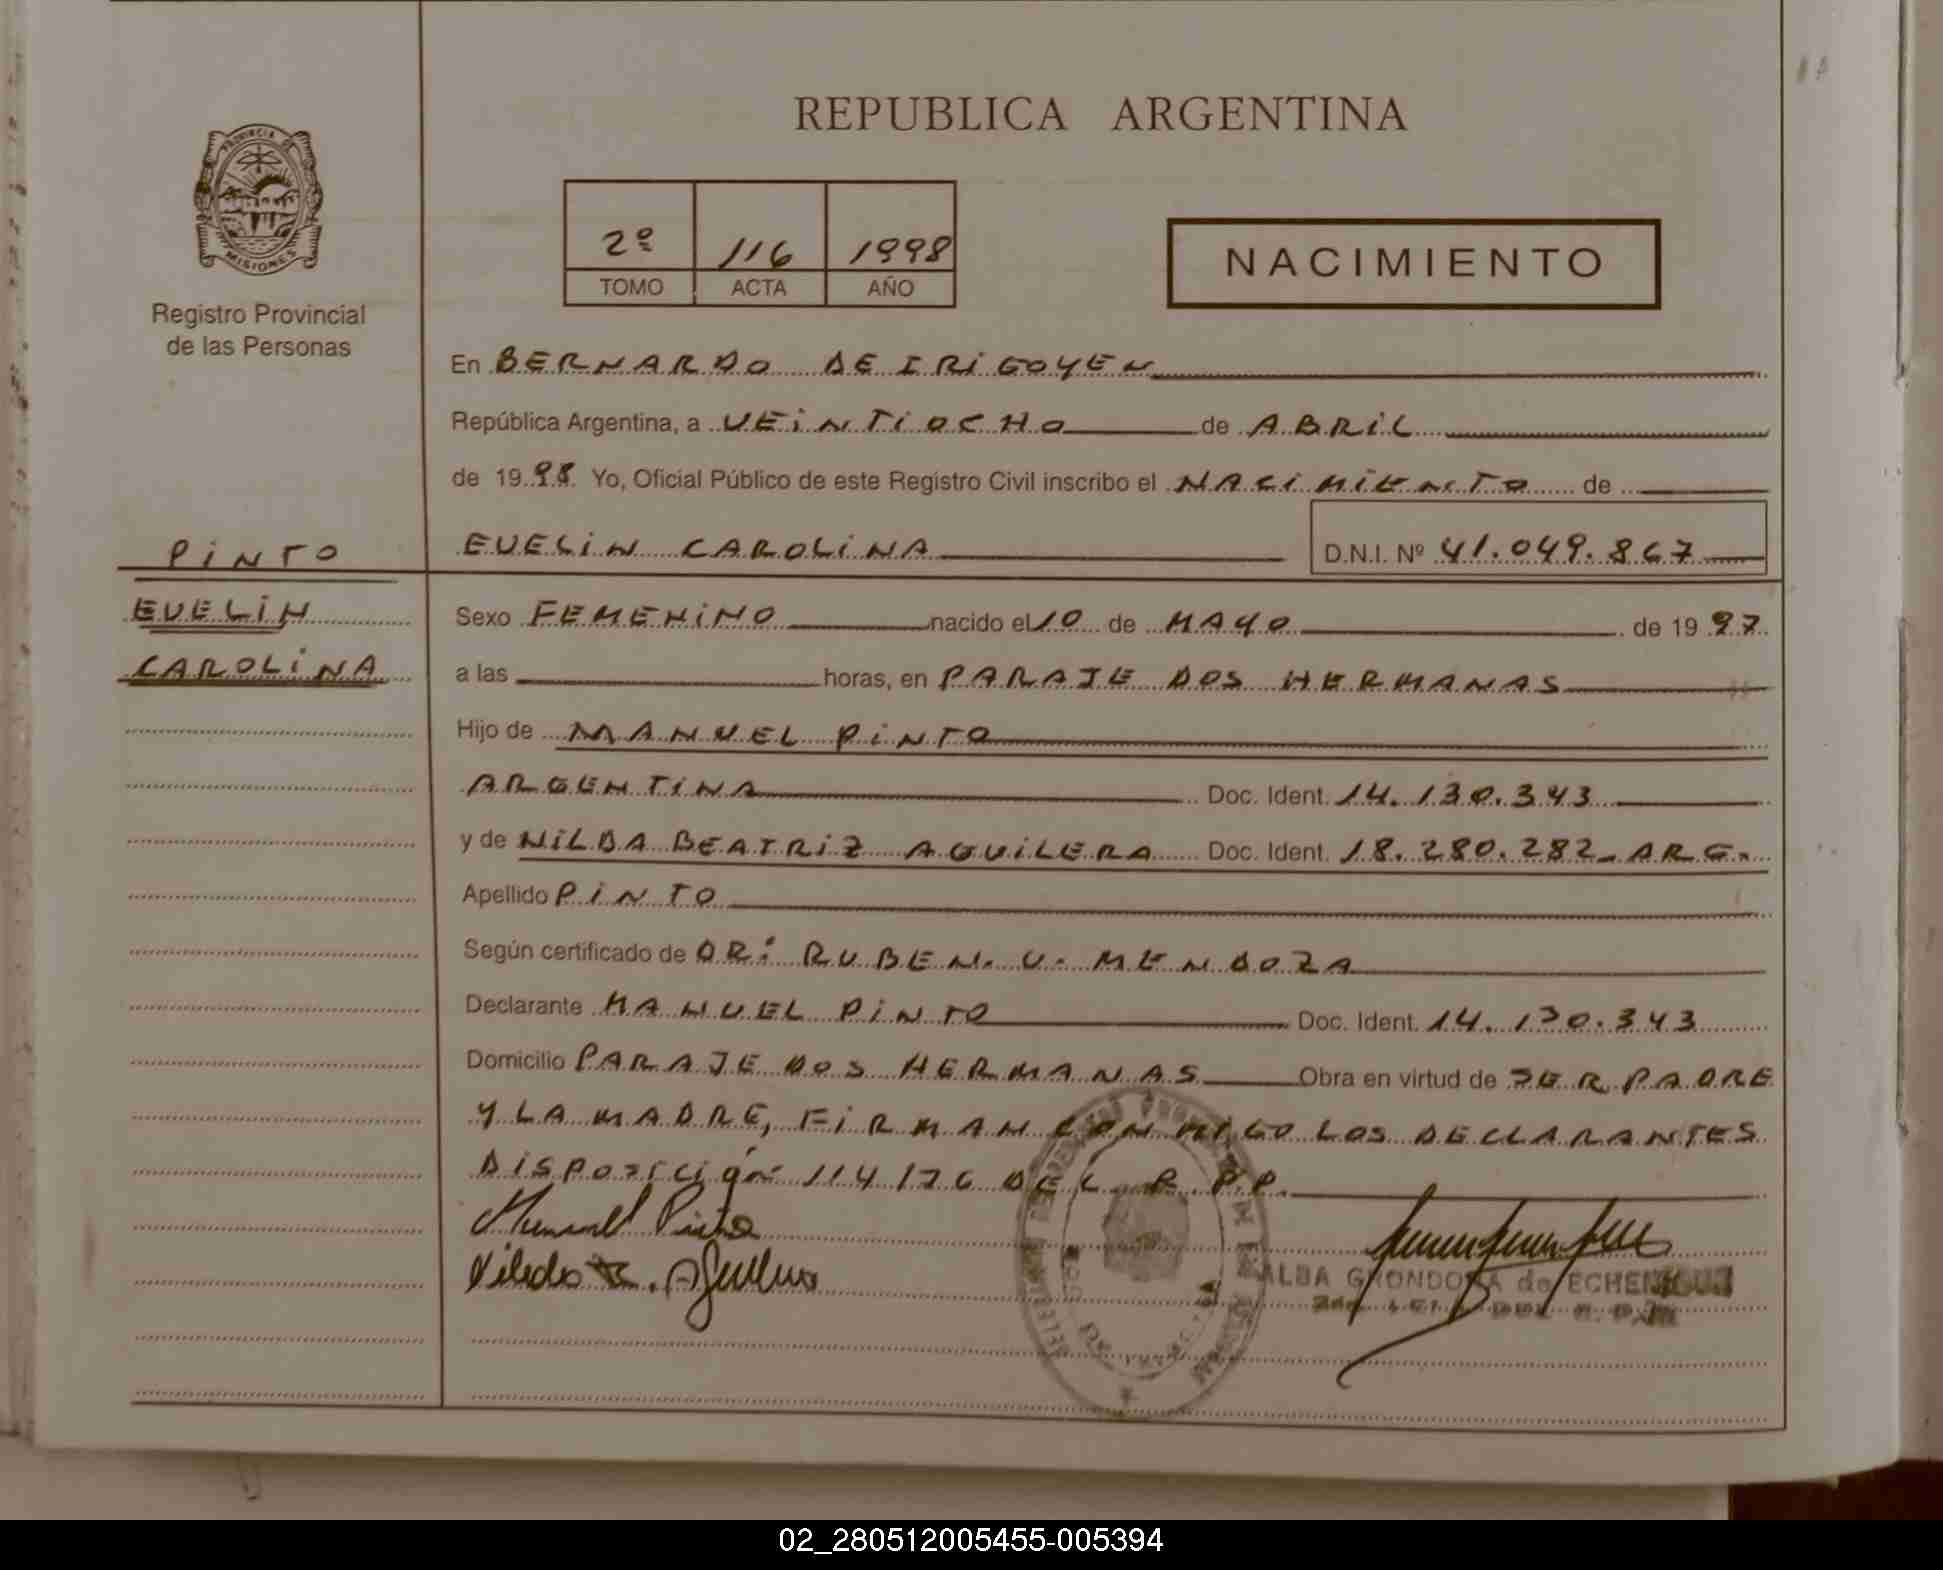 REPUBLICA ARGENTINA
PROVINCIA DE
MISIONES
Registro Provincial
de las Personas
2º 116 1998
TOMO ACTA AÑO
NACIMIENTO
En BERNARDO DE IRIGOYEN
República Argentina, a VEINTIOCHO de ABRIL
de 1998 Yo, Oficial Público de este Registro Civil inscribo el NACIMIENTO de
PINTO
EVELIN CAROLINA D.N.I. Nº 41.049.867
EVELIN
CAROLINA
Sexo FEMENINO nacido el 10 de MAYO de 1997
a las horas, en PARAJE DOS HERMANAS
Hijo de MANUEL PINTO
ARGENTINA Doc. Ident. 14.130.343
y de NILDA BEATRIZ AGUILERA Doc. Ident. 18.280.282- ARG.
Apellido PINTO
Según certificado de DR: RUBEN. V. MENDOZA
Declarante MANUEL PINTO Doc. Ident. 14.130.343
Domicilio PARAJE DOS HERMANAS Obra en virtud de SER PADRE
Y LA MADRE, FIRMAN CONMIGO LOS DECLARANTES
DISPOSICIÓN 114/76 DEL R.P.P.
Manuel Pinto
ALBA GRONDONA de ECHENIQUE
02_280512005455-005394